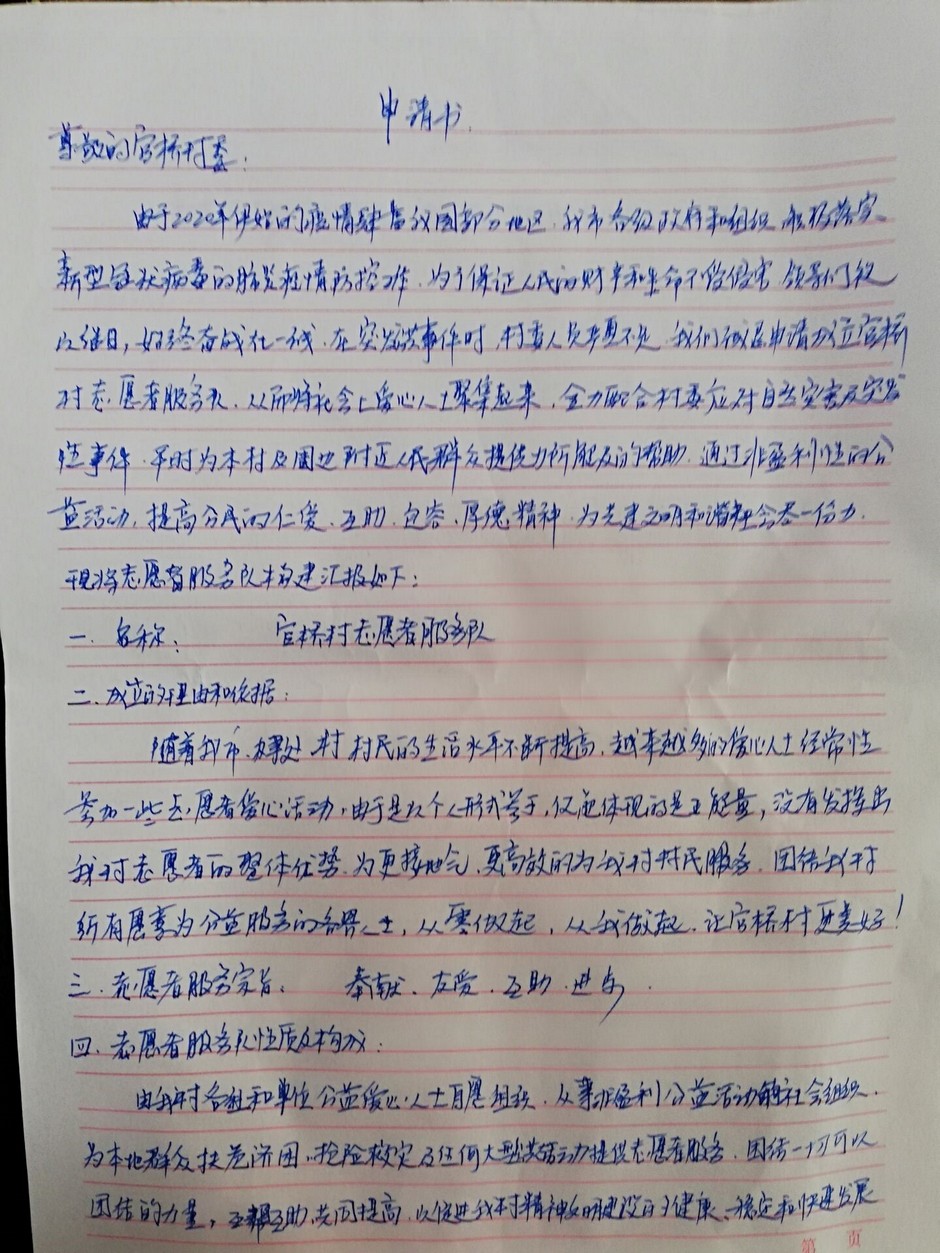 申请书
尊敬的官桥村委:
由于2020年伊始的疫情肆虐我国部分地区.我市各级政府和组织积极落实
新型冠状病毒的肺炎疫情防控工作.为了保证人民的财产和生命不受侵害.领导们夜
以继日,始终奋战在一线.在突发类事件时,村委人员毕竟不足.我们诚恳申请成立官桥
村志愿者服务队.从而将社会上爱心人士聚集起来,全力配合村委应对自然灾害及突发
性事件.平时为本村及周边附近人民群众提供力所能及的帮助.通过非盈利性的公
益活动,提高公民的仁爱、互助、包容、厚德精神.为共建文明和谐社会尽一份力.
现将志愿者服务队构建汇报如下:
一.名称: 官桥村志愿者服务队
二.成立的理由和依据:
随着我市.办事处.村村民的生活水平不断提高.越来越多的爱心人士经常性
参加一些志愿者爱心活动.由于是以个人形式参于,仅能体现的是正能量,没有发挥出
我村志愿者的整体优势.为更接地气,更高效的为我村村民服务.团结我村
所有愿意为公益服务的各界人士,从零做起,从我做起.让官桥村更美好!
三.志愿者服务宗旨: 奉献.友爱.互助.进步.
四.志愿者服务队性质及构成:
由我村各组和单位公益爱心人士自愿组织.从事非盈利公益活动的社会组织.
为本地群众扶危济困.抢险救灾及任何大型类活动提供志愿者服务.团结一切可以
团结的力量,互帮互助.共同提高.以促进我村精神文明建设的健康、稳定和快速发展
第 页